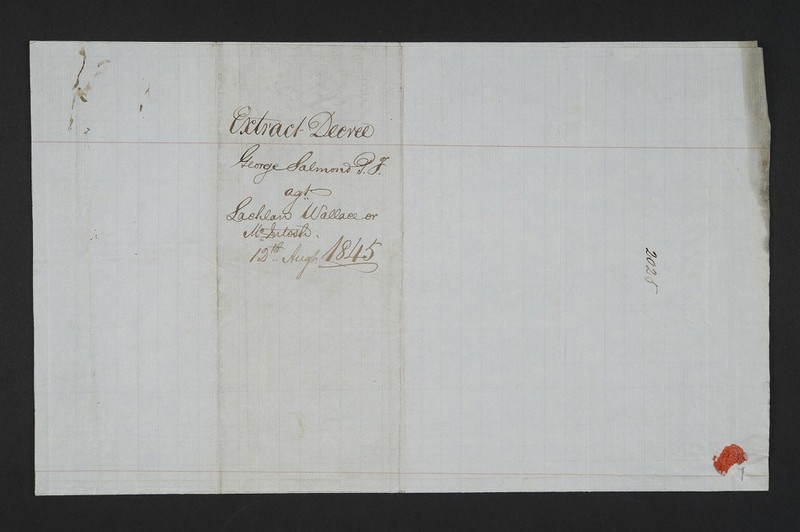 Extract Decree
George Salmond P.F.
agt
Lachlan Wallace or
McIntosh.
12th Augt 1845
2025